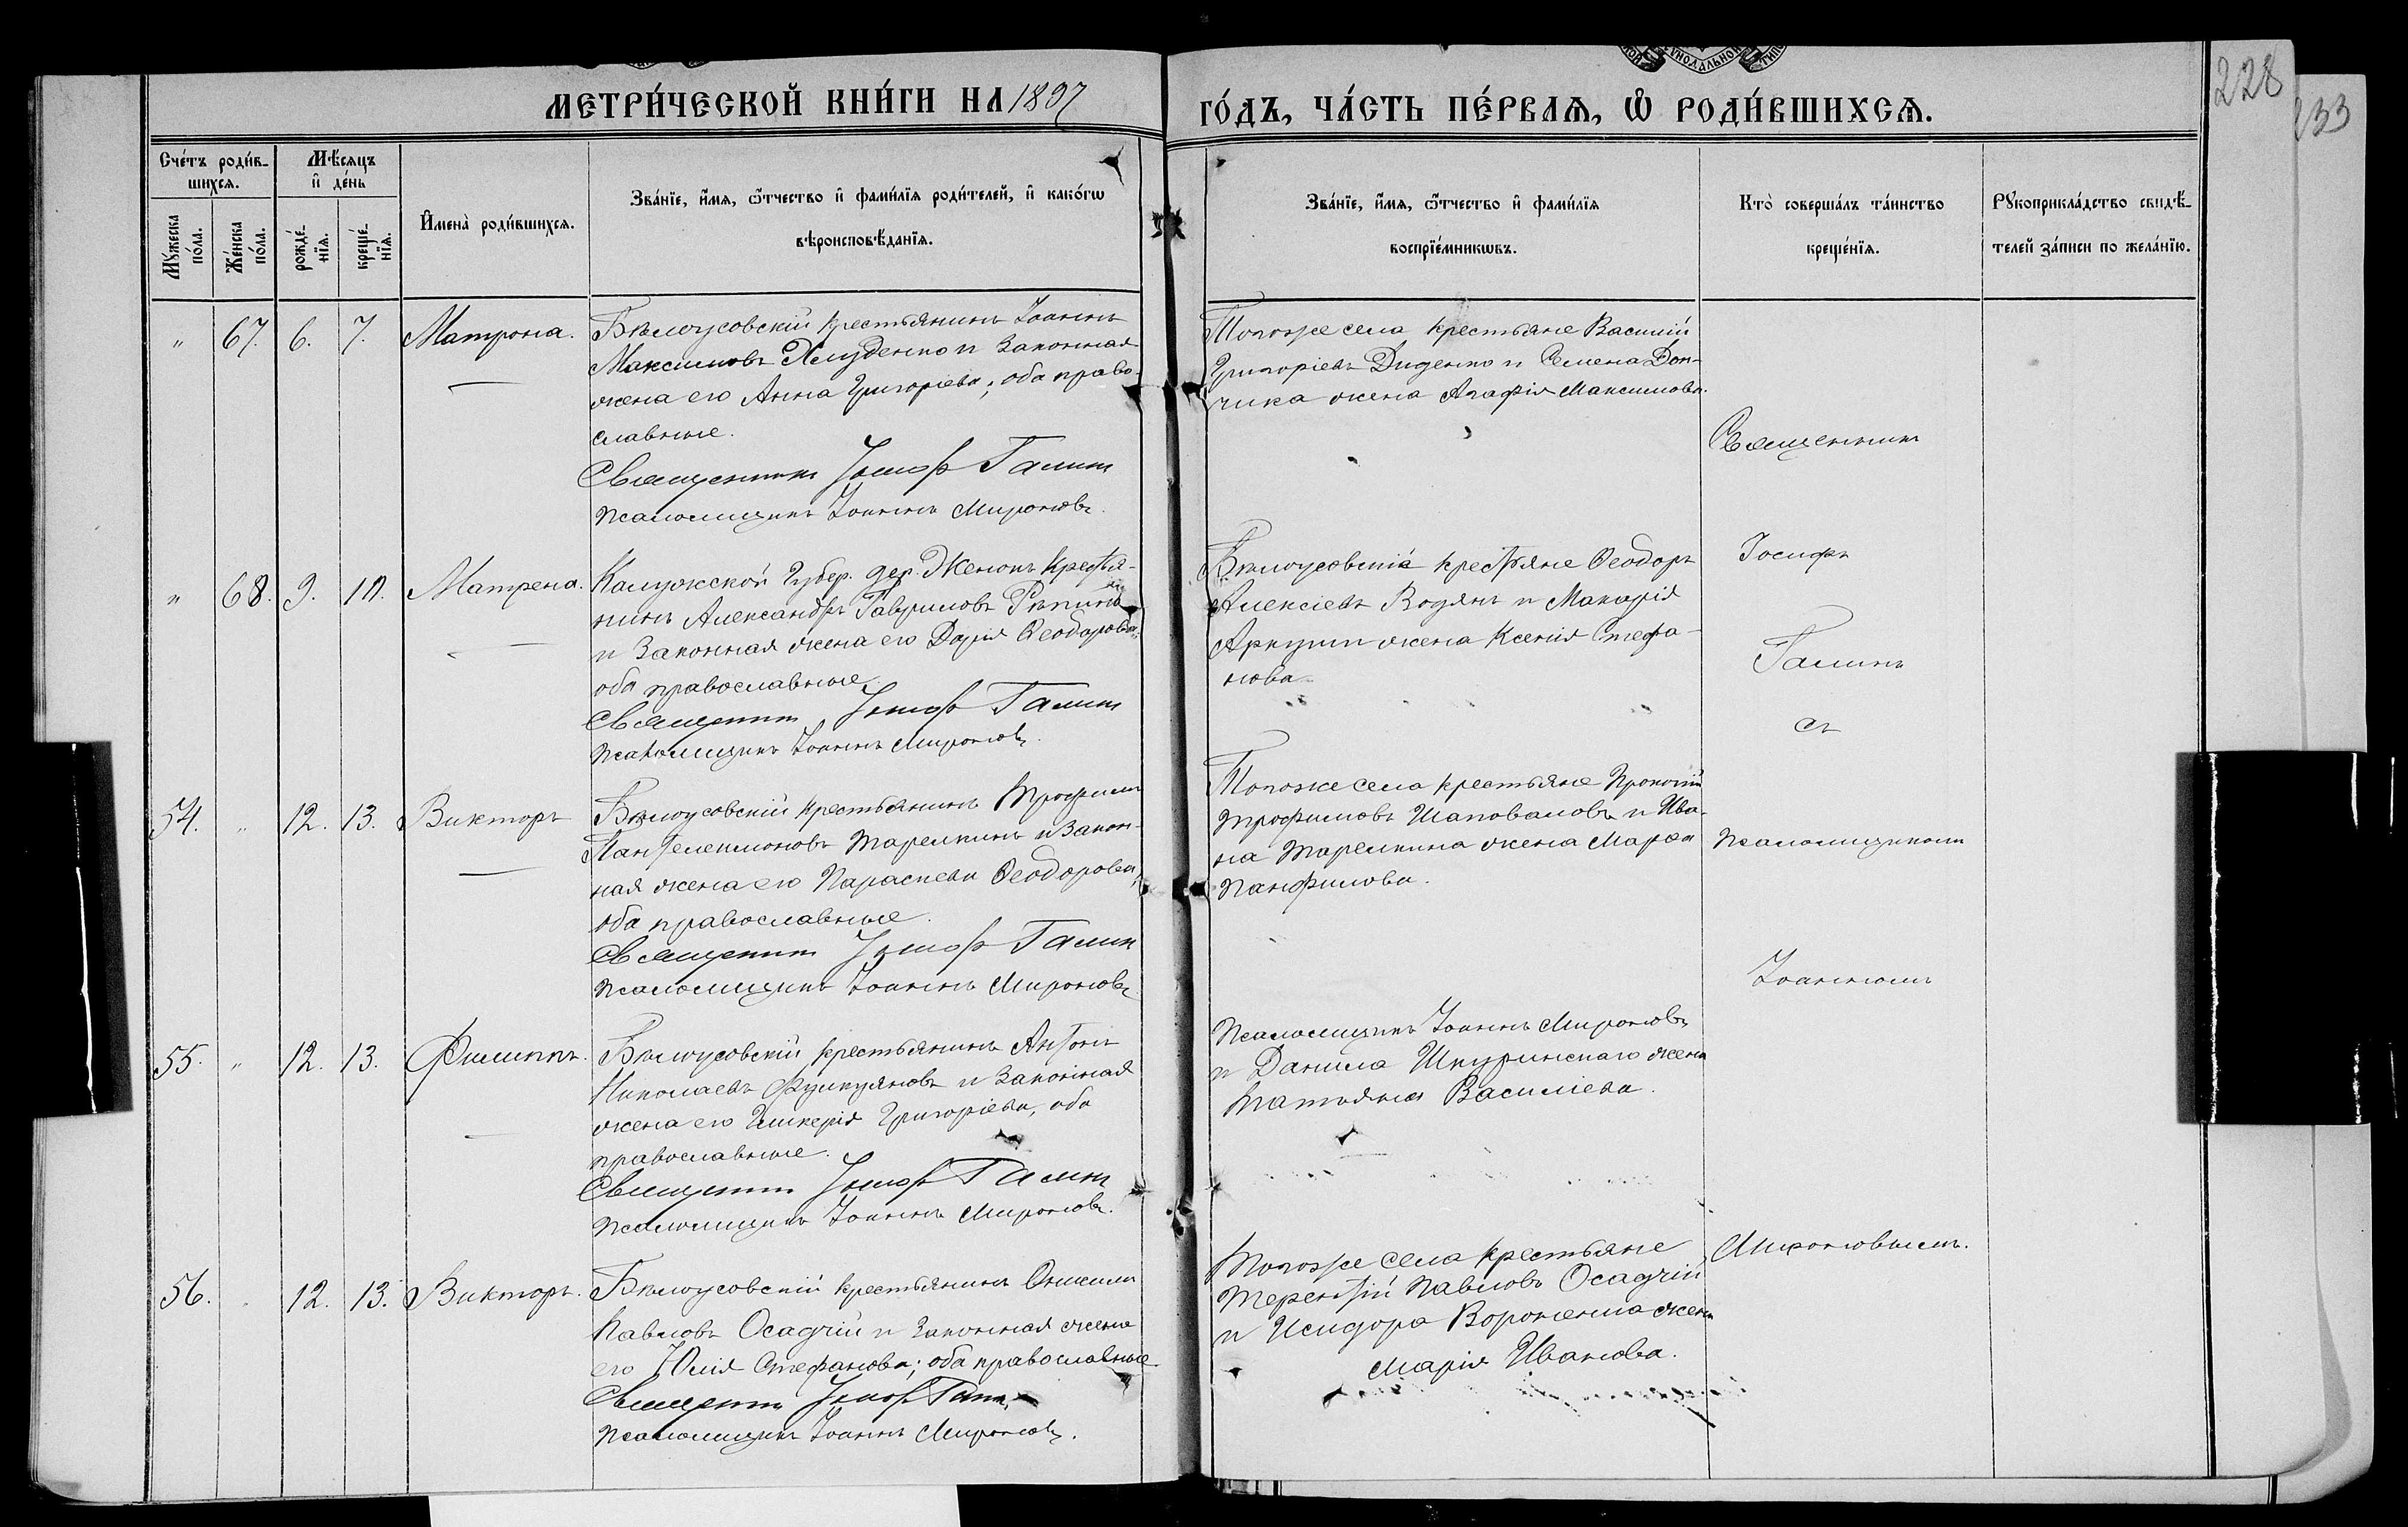 МЕТРИ́ЧЕСКОЙ КНИ́ГИ НА 1897
ГО́ДЪ, ЧА́СТЬ ПЕ́РВАѦ, Ѡ РОДИ́ВШИХСѦ.
228
133
Сче́тъ роди́в-
шихсѧ.
Мѣ́сяцъ
и҆ де́нь
Мꙋ́жеска
по́ла.
Же́нска
по́ла.
рожде́-
нїѧ.
креще́-
нїѧ.
И҆мена̀ роди́вшихсѧ.
Зва́нїе, и҆́мѧ, ѻ҆́тчество и҆ фами́лїѧ роди́телей, и҆ како́гѡ
вѣроисповѣ́данїѧ.
Зва́нїе, и҆́мѧ, ѻ҆́тчество и҆ фами́лїѧ
воспрїе́мникѡвъ.
Кто̀ соверша́лъ та́инство
креще́нїѧ.
Рꙋкоприкла́дство свидѣ́-
телей за́писи по жела́нїю.
" 67. 6. 7. Матрона.
Бѣлоусовскій крестьянинъ Іоаннъ
Максимовъ и законная
жена его Анна Григоріева; оба право-
славные.
Священникъ Іосифъ Галинъ
Псаломщикъ Іоаннъ Мироновъ.
Тогоже села крестьяне Василій
Григоріевъ Диденко и Семена Дон-
чика жена Агафія Максимова.
Священникъ
" 68. 9. 10. Матрена.
Калужской Губер. дер. крестья-
нинъ Александръ Гавриловъ Рѣпинъ
и законная жена его Дарія Ѳеодорова,
оба православные.
Священникъ Іосифъ Галинъ
Псаломщикъ Іоаннъ Мироновъ.
Бѣлоусовскіе крестьяне Ѳеодоръ
Алексіевъ Водянъ и Макарія
жена Ксенія Стефа-
нова
Іосифъ
Галинъ
съ
54. " 12. 13. Викторъ
Бѣлоусовскій крестьянинъ Трофимъ
Пантелеимоновъ Тарелкинъ и закон-
ная жена его Параскева Ѳеодорова,
оба православные.
Священникъ Іосифъ Галинъ
Псаломщикъ Іоаннъ Мироновъ
Тогоже села крестьяне Прокопій
Трофимовъ Шаповаловъ и Ива-
на Тарелкина жена Марѳа
Панфилова.
Псаломщикомъ
Іоанномъ
55. " 12. 13. Филиппъ.
Бѣлоусовскій крестьянинъ Антонъ
Николаевъ и законная
жена его Гликерія Григоріева, оба
православные.
Священникъ Іосифъ Галинъ
Псаломщикъ Іоаннъ Мироновъ.
Псаломщикъ Іоаннъ Мироновъ
и Данила Шкуринскаго жена
Татьяна Василіева.
56. 12. 13. Викторъ.
Бѣлоусовскій крестьянинъ Онисимъ
Павловъ Осадчій и законная жена
его Юлія Стефанова; оба православные.
Священникъ Іосифъ Галинъ
Псаломщикъ Іоаннъ Мироновъ.
Тогоже села крестьяне
Терентій Павловъ Осадчій
и Исидора жена
Марія Иванова.
Мироновымъ.